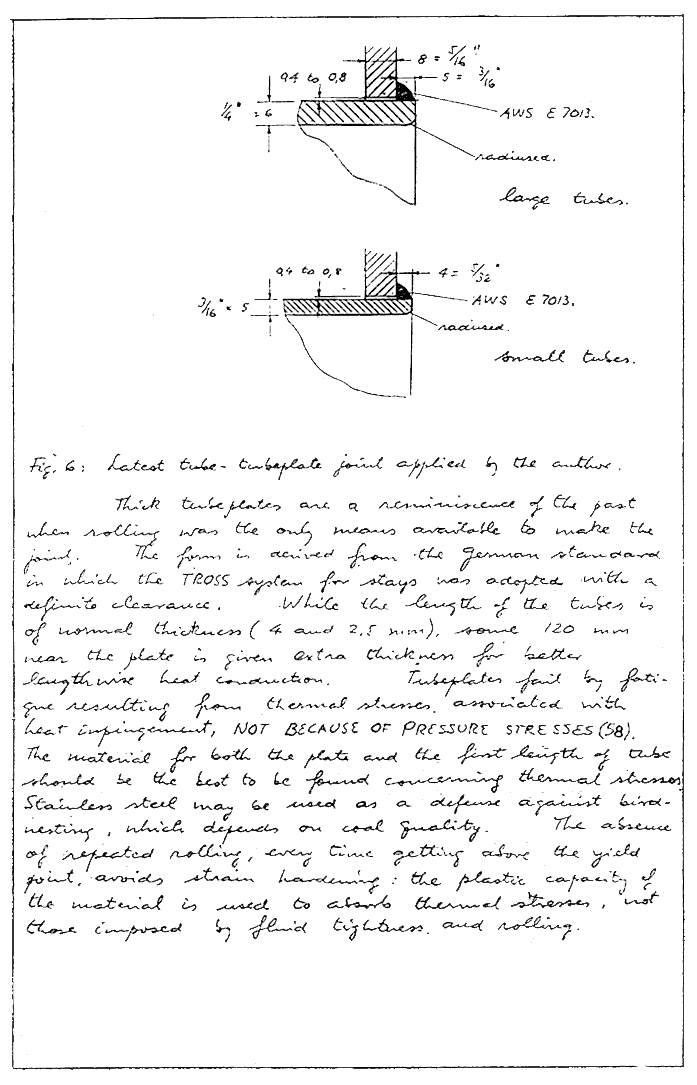 8 = 5/16"
0,4 to 0,8
5 = 3/16"
1/4" = 6
AWS E 7013.
radiused.
large tubes.
0,4 to 0,8
4 = 5/32"
3/16" = 5
AWS E 7013.
radiused.
small tubes.
Fig. 6: Latest tube-tubeplate joint applied by the author.
Thick tubeplates are a reminiscence of the past
when rolling was the only means available to make the
joint. The form is derived from the German standard
in which the TROSS system for stays was adopted with a
definite clearance. While the length of the tubes is
of normal thickness (4 and 2,5 mm), some 120 mm
near the plate is given extra thickness for better
lengthwise heat conduction. Tubeplates fail by fati-
gue resulting from thermal stresses, associated with
heat impingement, NOT BECAUSE OF PRESSURE STRESSES (58).
The material for both the plate and the first length of tube
should be the best to be found concerning thermal stresses
Stainless steel may be used as a defense against bird-
nesting, which depends on coal quality. The absence
of repeated rolling, every time getting above the yield
point, avoids strain hardening: the plastic capacity of
the material is used to absorb thermal stresses, not
those imposed by fluid tightness and rolling.